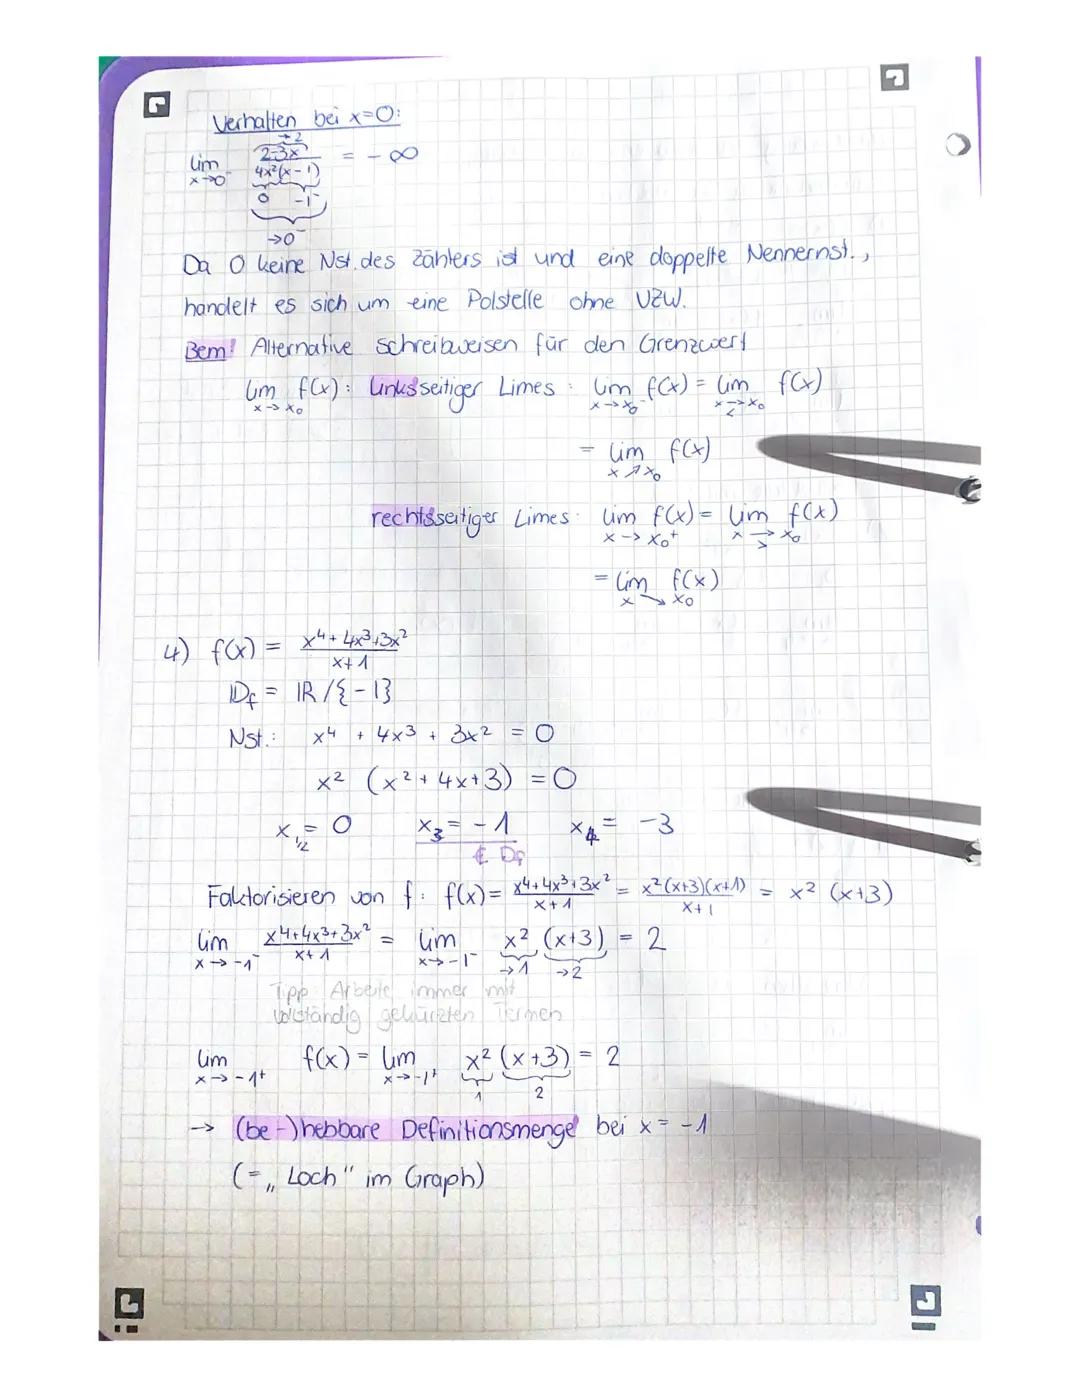 Verhalten bei x=0:
lim x→0⁻ (2-3x)/(4x²(x-1)) = -∞
→2
0 -1⁻
→0⁻
Da 0 keine Nst. des Zählers ist und eine doppelte Nennernst.,
handelt es sich um eine Polstelle ohne VZW.
Bem! Alternative Schreibweisen für den Grenzwert
lim x→x₀ f(x): linksseitiger Limes: lim x→x₀⁻ f(x) = lim x→x₀ < f(x)
= lim x↗x₀ f(x)
rechtsseitiger Limes: lim x→x₀⁺ f(x) = lim x→x₀ > f(x)
= lim x↘x₀ f(x)
4) f(x) = (x⁴+4x³+3x²)/(x+1)
Df = ℝ/{-1}
Nst.: x⁴ + 4x³ + 3x² = 0
x² (x²+4x+3) = 0
x₁/₂ = 0 x₃ = -1 x₄ = -3
∉ Df
Faktorisieren von f: f(x) = (x⁴+4x³+3x²)/(x+1) = (x²(x+3)(x+1))/(x+1) = x² (x+3)
lim x→-1⁻ (x⁴+4x³+3x²)/(x+1) = lim x→-1⁻ x² (x+3) = 2
→1 →2
Tipp: Arbeite immer mit
vollständig gekürzten Termen
lim x→-1⁺ f(x) = lim x→-1⁺ x² (x+3) = 2
1 2
→ (be-)hebbare Definitionsmenge bei x = -1
(= „Loch" im Graph)